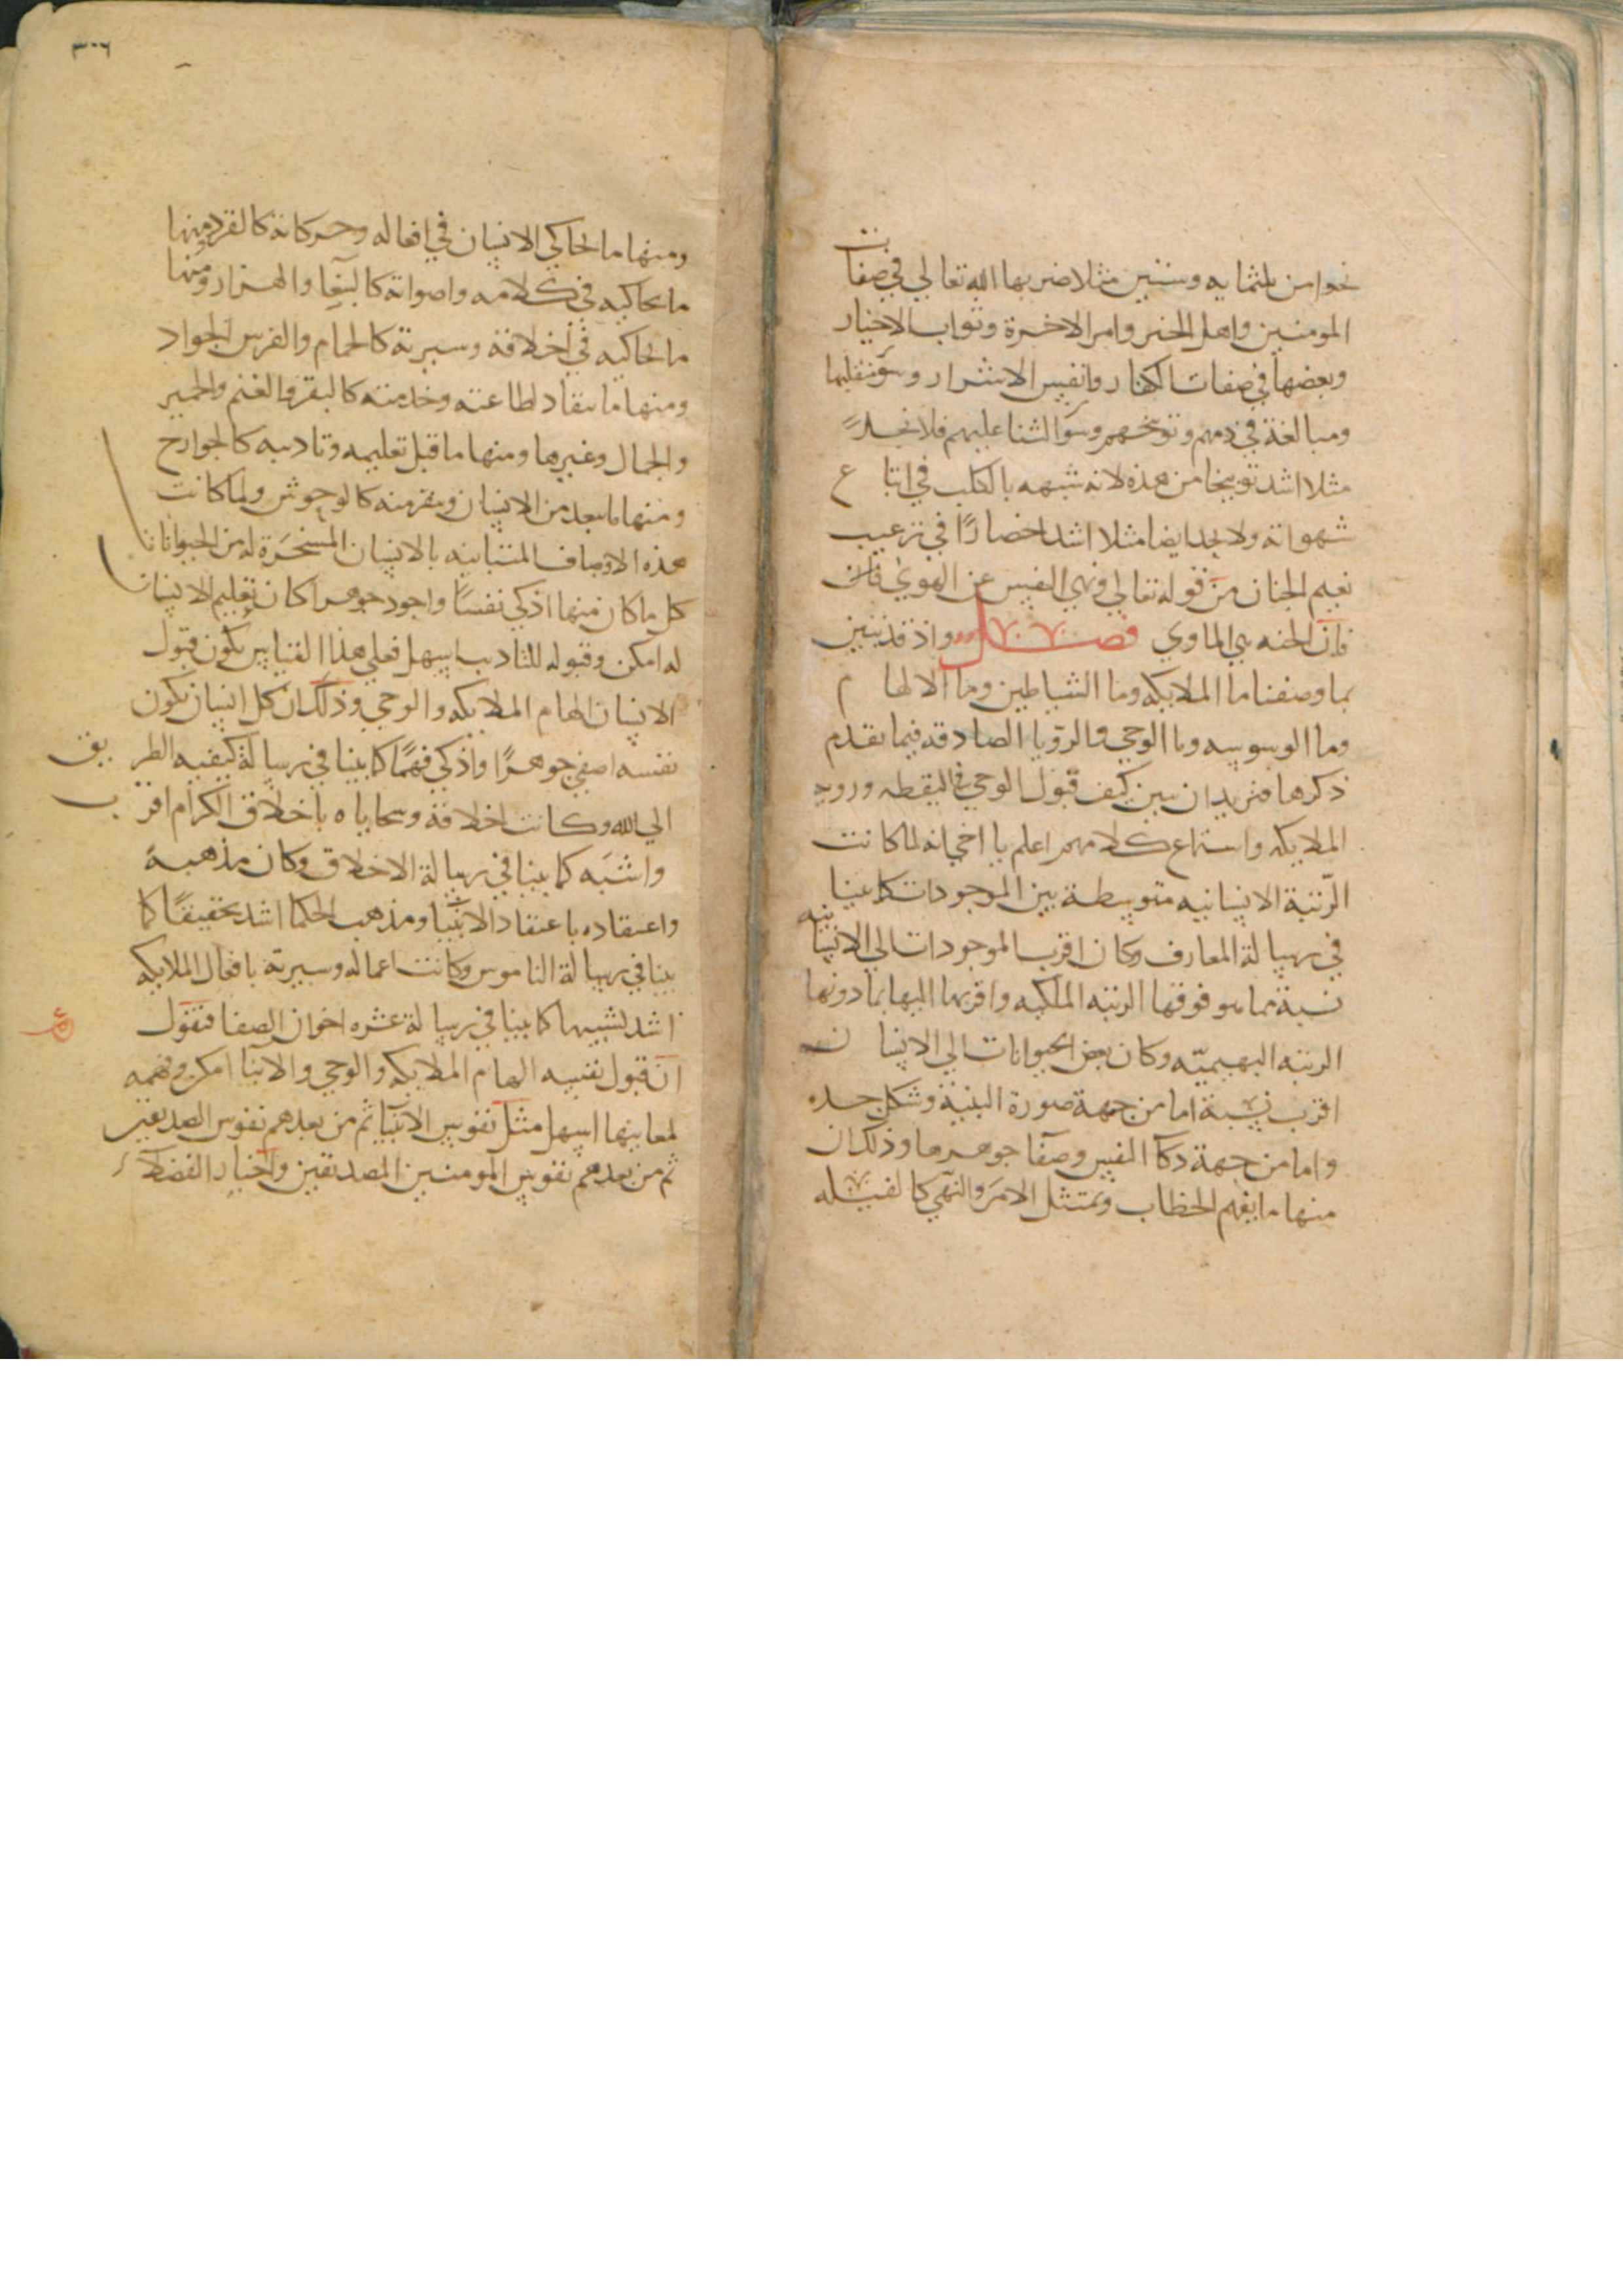 نحوا من ثلثمايه وستين مثلا ضربها الله تعالي في صفات
المومنين واهل الخير وامر الاخرة وثواب الاخيار
وبعضها في صفات الكفار وانفس الاشرار وسو منقلبها
ومبالغة في ذمهم وتوبيخهم وسو الثنا عليهم فلا تجد
مثلا اشد توبيخا من هذه لانه شبهه بالكلب في اتباع
شهواته ولا نجد ايضا مثلا اشد اختصارًا في ترغيب
نعيم الجنان من قوله تعالي ونهي النفس عن الهوي فان
فان الجنه هي الماوي فصل واذ قد تبين
بما وصفنا ما الملايكه وما الشياطين وما الالهام
وما الوسوسه وما الوحي والرؤيا الصادقه فيما تقدم
ذكرها فنريد ان نبين كيف قبول الوحي في اليقظه وروية
الملايكه واستماع كلامهم اعلم يا اخي انه لما كانت
الرّتبة الانسانيه متوسطة بين الموجودات كما بينا
في رسالة المعارف وكان اقرب الموجودات الي الانسانيه
نسبة مما هو فوقها الرتبه الملكيه واقربها اليها مما دونها
الرتبه البهيميّه وكان بعض الحيوانات الي الانسان
اقرب نسبة اما من جهة صورة البنية وشكل جسده
واما من جهة ذكا النفس وصفا جوهرها وذلك ان
منها ما يفهم الخطاب ويمتثل الامر والنهي كالفيله
٣٠٦
ومنها ما يحاكي الانسان في افعاله وحركاته كالقرد ومنها
ما يحاكيه في كلامه واصواته كالببغا والهزار ومنها
ما يحاكيه في أخلاقه وسيرته كالحمام والفرس الجواد
ومنها ما ينقاد لطاعته وخدمته كالبقر والغنم والحمير
والجمال وغيرها ومنها ما قبل تعليمه وتاديبه كالجوارح
ومنها ما يبعد من الانسان وينفر منه كالوحوش ولما كانت
هذه الاوصاف المتباينه بالانسان المسخرة له من الحيوانات
كل ما كان منها اذكي نفسًا واجود جوهرا كان تعليم الانسان
له امكن وقبوله للتاديب اسهل فعلي هذا القياس يكون قبول
الانسان الهام الملايكه والوحي وذلك ان كل انسان تكون
نفسه اصفي جوهرًا واذكي فهمًا كما بينا في رسالة كيفيه الطريق
الي الله وكانت اخلاقه وسجاياه باخلاق الكرام اقرب
واشبه كما بينا في رسالة الاخلاق وكان مذهبه
واعتقاده باعتقاد الانبيا ومذهب الحكما اشد تحقيقًا كما
بينا في رسالة الناموس وكانت اعماله وسيرته بافعال الملايكه
اشد تشبيها كما بينا في رسالة عشره اخوان الصفا فنقول
ان قبول نفسه الهام الملايكه والوحي والانبا امكن وفهمه
لمعانيها اسهل مثل نفوس الانبيا ثم من بعدهم نفوس الصديقين
ثم من بعدهم نفوس المومنين المصدقين واخيار الفضلا